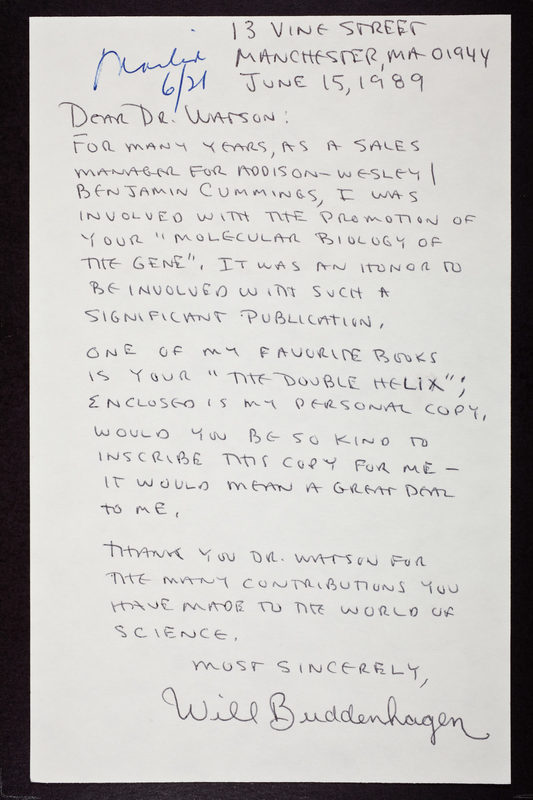 13 VINE STREET
MANCHESTER, MA 01944
6/21
JUNE 15, 1989
DEAR DR. WATSON:
FOR MANY YEARS, AS A SALES
MANAGER FOR ADDISON-WESLEY/
BENJAMIN CUMMINGS, I WAS
INVOLVED WITH THE PROMOTION OF
YOUR "MOLECULAR BIOLOGY OF
THE GENE". IT WAS AN HONOR TO
BE INVOLVED WITH SUCH A
SIGNIFICANT PUBLICATION.
ONE OF MY FAVORITE BOOKS
IS YOUR "THE DOUBLE HELIX";
ENCLOSED IS MY PERSONAL COPY.
WOULD YOU BE SO KIND TO
INSCRIBE THIS COPY FOR ME –
IT WOULD MEAN A GREAT DEAL
TO ME.
THANK YOU DR. WATSON FOR
THE MANY CONTRIBUTIONS YOU
HAVE MADE TO THE WORLD OF
SCIENCE.
MOST SINCERELY,
Will Buddenhagen